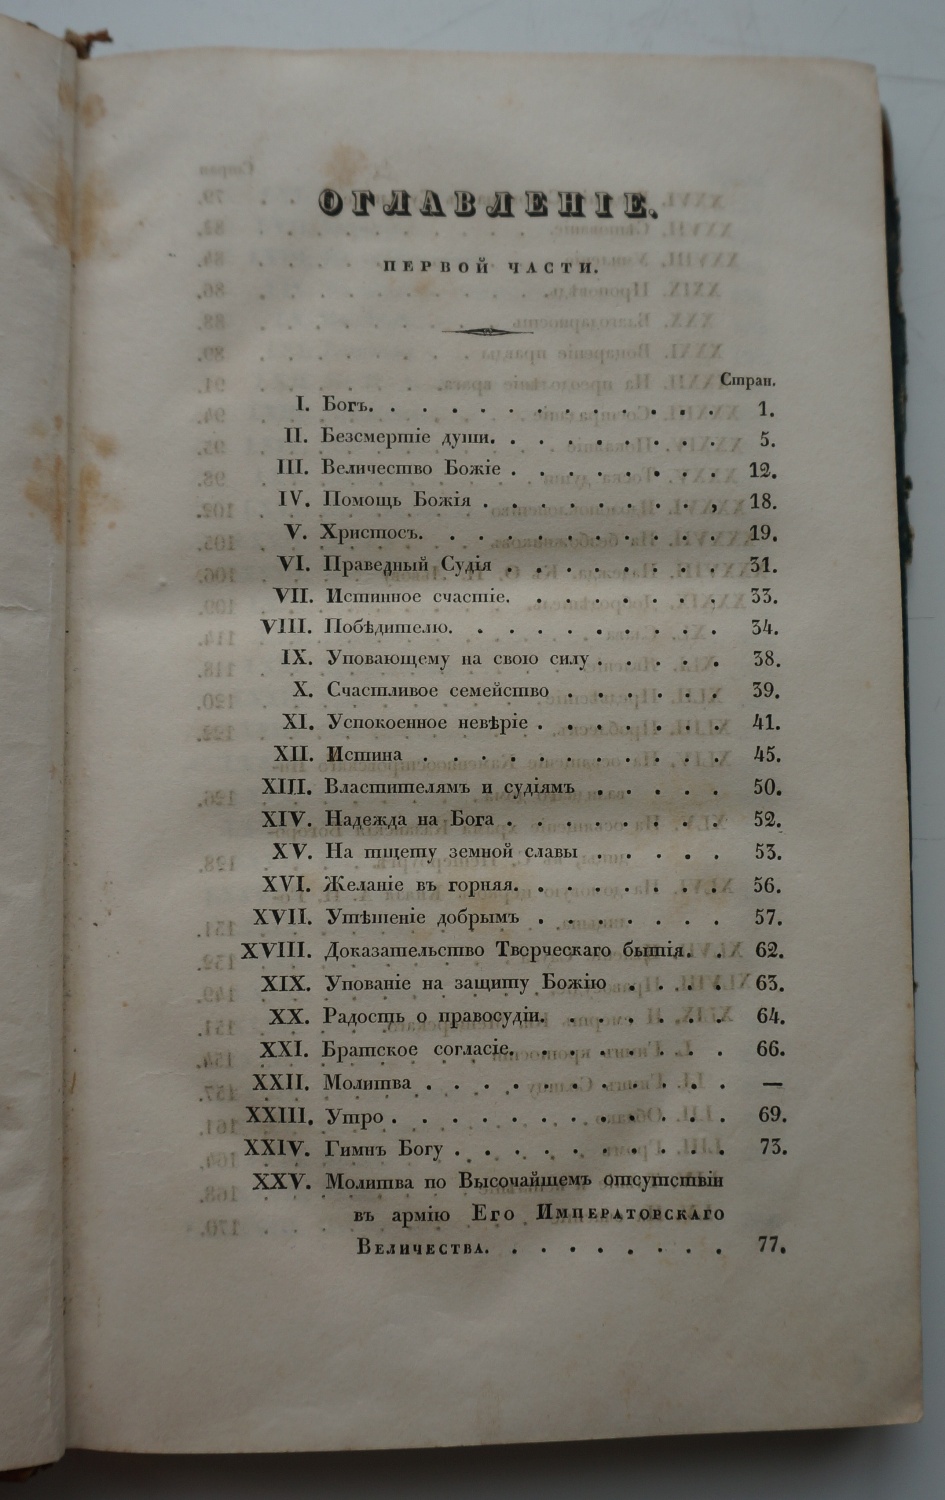 ОГЛАВЛЕНІЕ.
ПЕРВОЙ ЧАСТИ.
Стран.
I. Богъ. . . . . . . . . . . . . 1.
II. Безсмертіе души. . . . . . . . . 5.
III. Величество Божіе . . . . . . . . 12.
IV. Помощь Божія . . . . . . . . , 18.
V. Христосъ. . . . . . . . . . . . 19.
VI. Праведный Судія . . . . . . . . 31.
VII. Истинное счастіе. . . . . . . . 33.
VIII. Побѣдителю. . . . . . . . . . 34.
IX. Уповающему на свою силу . . . . . 38.
X. Счастливое семейство . . . . . . 39.
XI. Успокоенное невѣріе . . . . . . . 41.
XII. Истина . . . . . . . . . . . 45.
XIII. Властителямъ и судіямъ . . . . . 50.
XIV. Надежда на Бога . . . . . . . . 52.
XV. На тщету земной славы . . . . . 53.
XVI. Желаніе въ горняя. . . . . . . . 56.
XVII. Утѣшеніе добрымъ . . . . . . . 57.
XVIII. Доказательство Творческаго бытія. . 62.
XIX. Упованіе на защиту Божію . . . . 63.
XX. Радость о правосудіи. . . . . . . 64.
XXI. Братское согласіе. . . . . . . . 66.
XXII. Молитва . . . . . . . . . . . —
XXIII. Утро . . . . . . . . . . . . 69.
XXIV. Гимнъ Богу . . . . . . . . . . 73.
XXV. Молитва по Высочайшемъ отсутствіи
въ армію Его Императорскаго
Величества. . . . . . . . . 77.